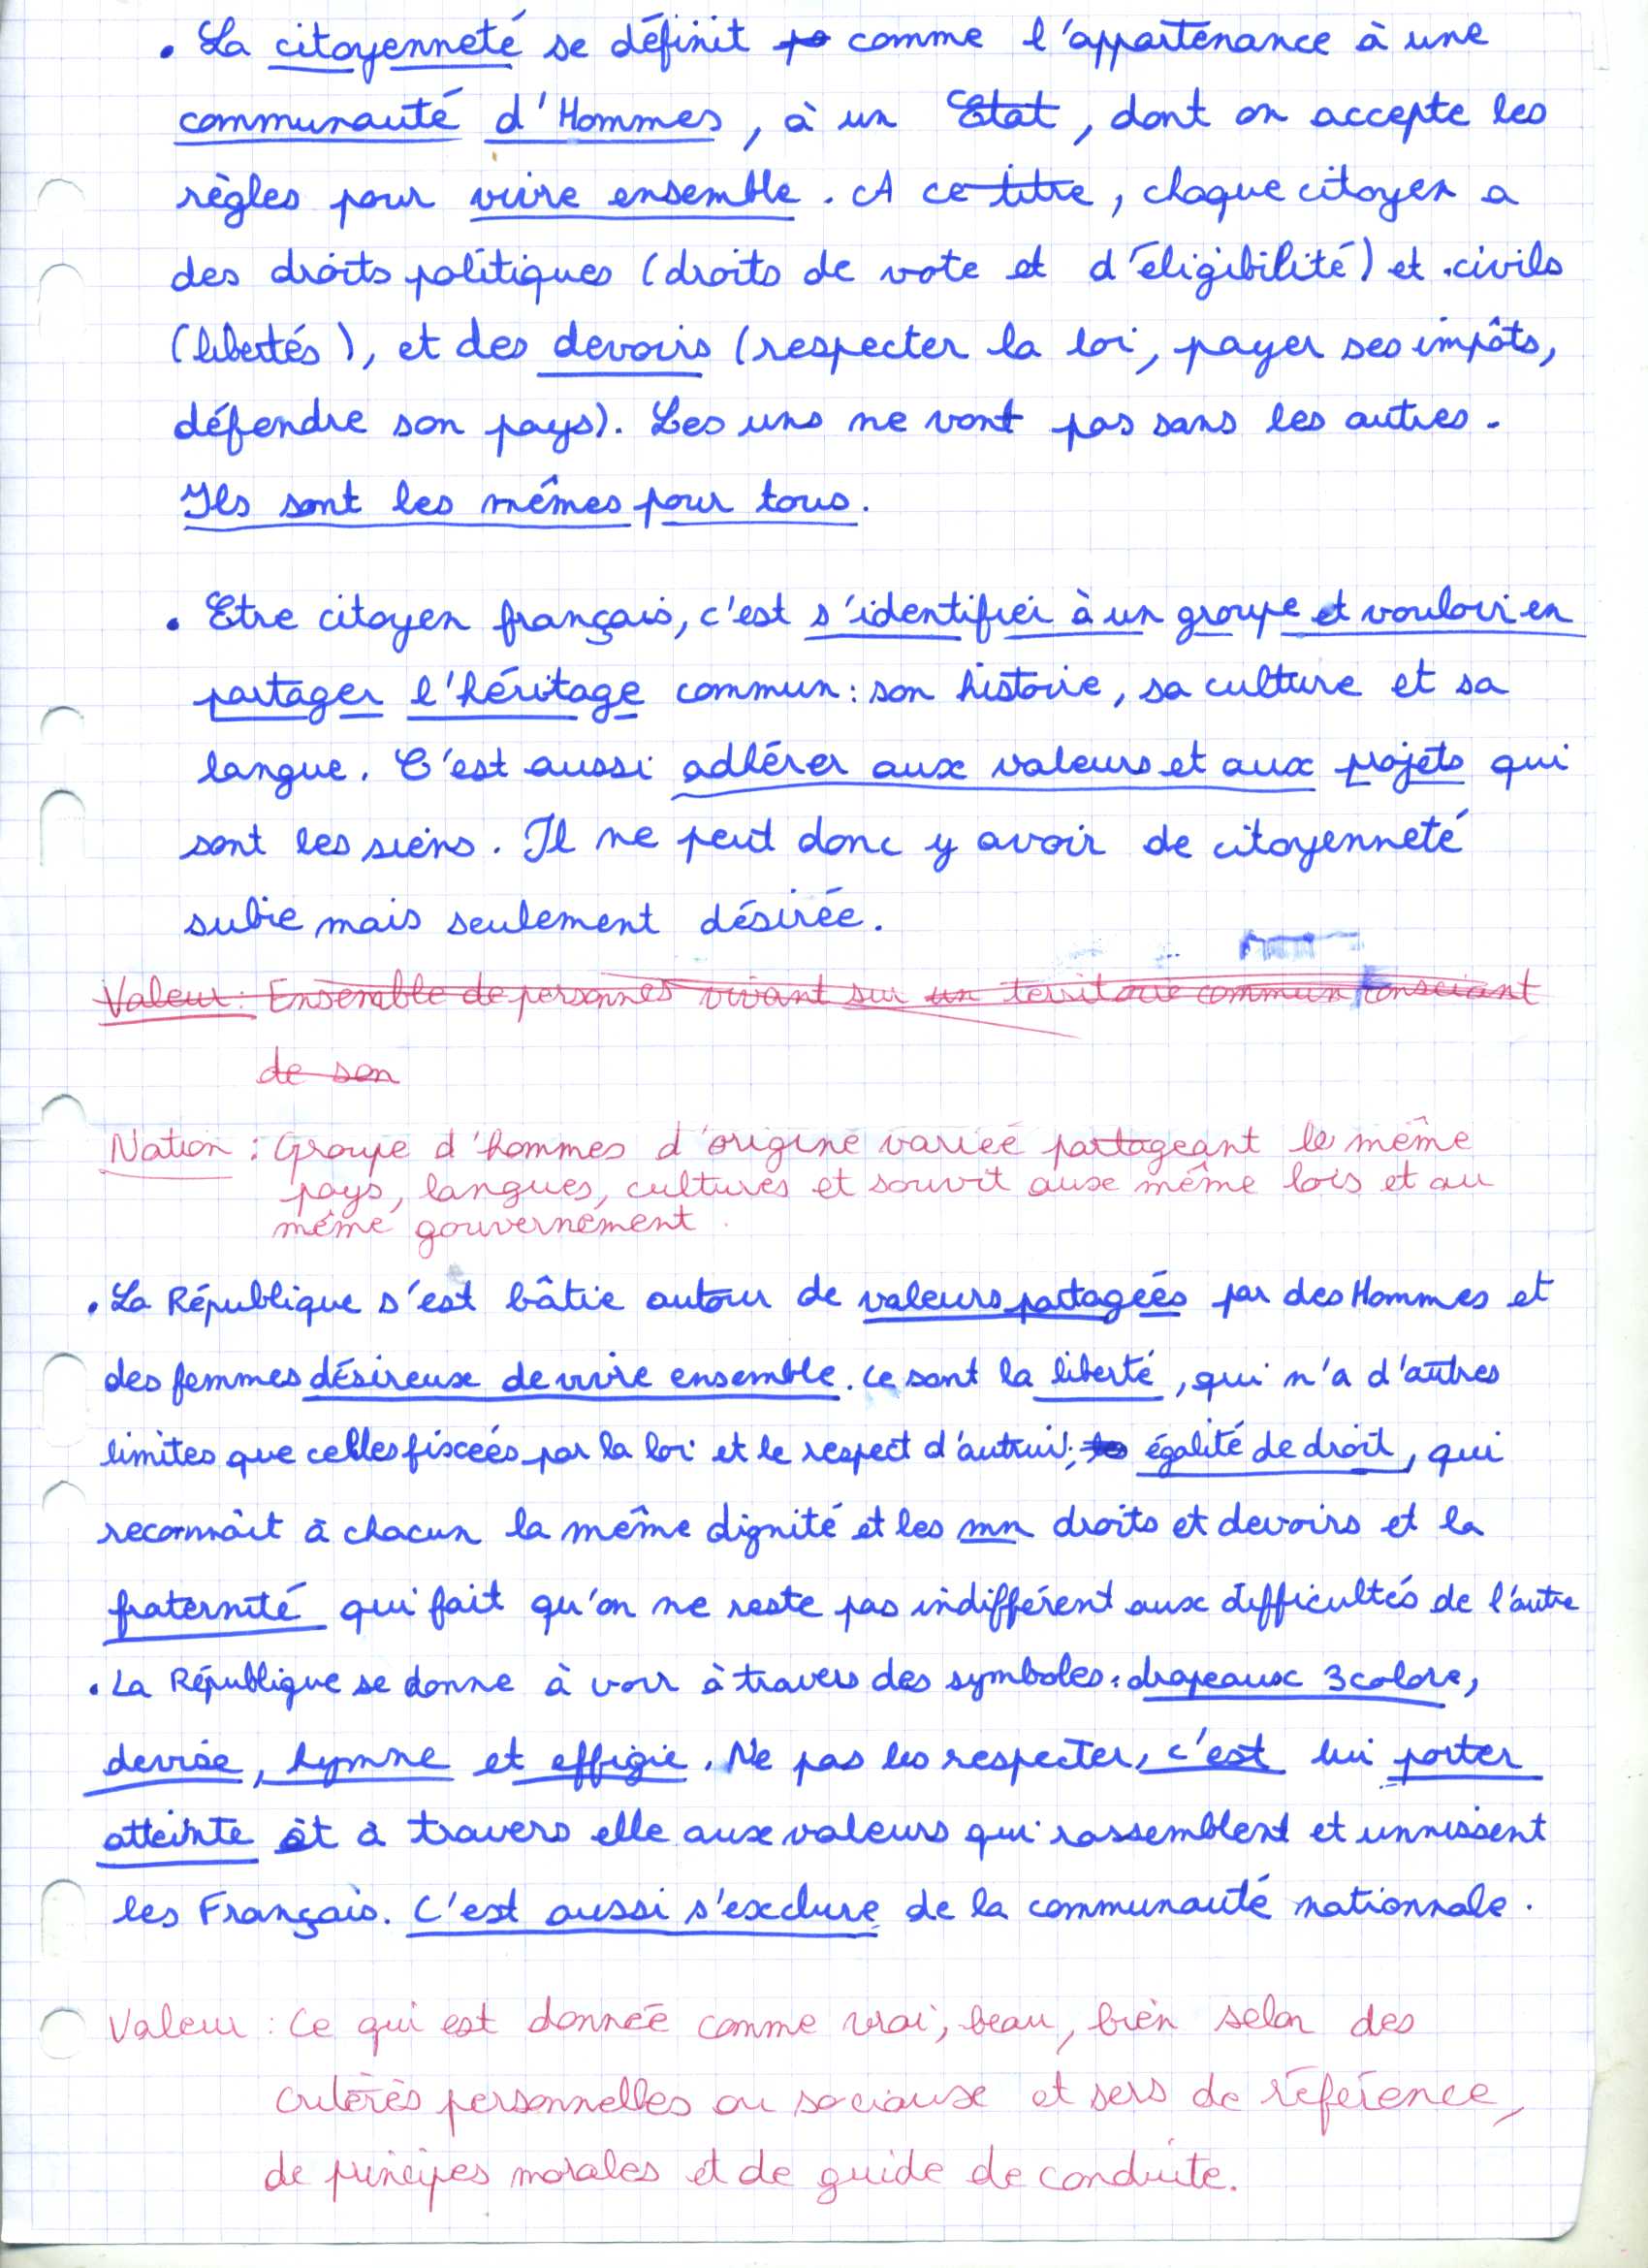 . La citoyenneté se définit comme l'appartenance à une
communauté d'Hommes, à un Etat, dont on accepte les
règles pour vivre ensemble. A ce titre, chaque citoyen a
des droits politiques (droits de vote et d'éligibilité) et civils
(libertés), et des devoirs (respecter la loi, payer ses impôts,
défendre son pays). Les uns ne vont pas sans les autres.
Ils sont les mêmes pour tous.
. Etre citoyen français, c'est s'identifier à un groupe et vouloir en
partager l'héritage commun : son histoire, sa culture et sa
langue. C'est aussi adhérer aux valeurs et aux projets qui
sont les siens. Il ne peut donc y avoir de citoyenneté
subie mais seulement désirée.
Valeur : Ensemble de personnes vivant sur un territoire commun consciant
de son
Nation : Groupe d'hommes d'origine variée partageant le même
pays, langues, cultures et souvit aux même lois et au
même gouvernement.
. La République s'est bâtie autour de valeurs partagées par des Hommes et
des femmes désireux de vivre ensemble. Ce sont la liberté, qui n'a d'autres
limites que celles fixcées par la loi et le respect d'autrui; égalité de droit, qui
reconnaît à chacun la même dignité et les mn droits et devoirs et la
fraternité qui fait qu'on ne reste pas indifférent aux difficultés de l'autre
. La République se donne à voir à travers des symboles : drapeaux 3colore,
devise, hymne et effigie. Ne pas les respecter, c'est lui porter
atteinte et à travers elle aux valeurs qui rassemblent et unnissent
les Français. C'est aussi s'exclure de la communauté nationnale.
Valeur : Ce qui est donnée comme vrai, beau, bien selon des
critères personnelles ou sociaux et sers de référence,
de principes morales et de guide de conduite.